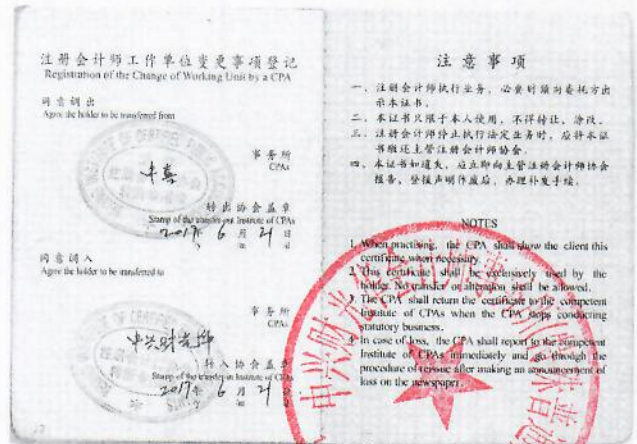 注册会计师工作单位变更事项登记
Registration of the Change of Working Unit by a CPA
同意调出
Agree the holder to be transferred from
事务所
CPAs
中喜
转出协会盖章
Stamp of the transfer-out Institute of CPAs
2017年 6月 21日
同意调入
Agree the holder to be transferred to
事务所
CPAs
中兴财光华
转入协会盖章
Stamp of the transfer-in Institute of CPAs
2017年 6月 21日
12
注意事项
一、注册会计师执行业务，必要时须向委托方出
示本证书。
二、本证书只限于本人使用，不得转让、涂改。
三、注册会计师停止执行法定业务时，应将本证
书缴还主管注册会计师协会。
四、本证书如遗失，应立即向主管注册会计师协会
报告，登报声明作废后，办理补发手续。
NOTES
1. When practising, the CPA shall show the client this
certificate when necessary.
2. This certificate shall be exclusively used by the
holder. No transfer or alteration shall be allowed.
3. The CPA shall return the certificate to the competent
Institute of CPAs when the CPA stops conducting
statutory business.
4. In case of loss, the CPA shall report to the competent
Institute of CPAs immediately and go through the
procedure of reissue after making an announcement of
loss on the newspaper.
中兴财光华会计师事务